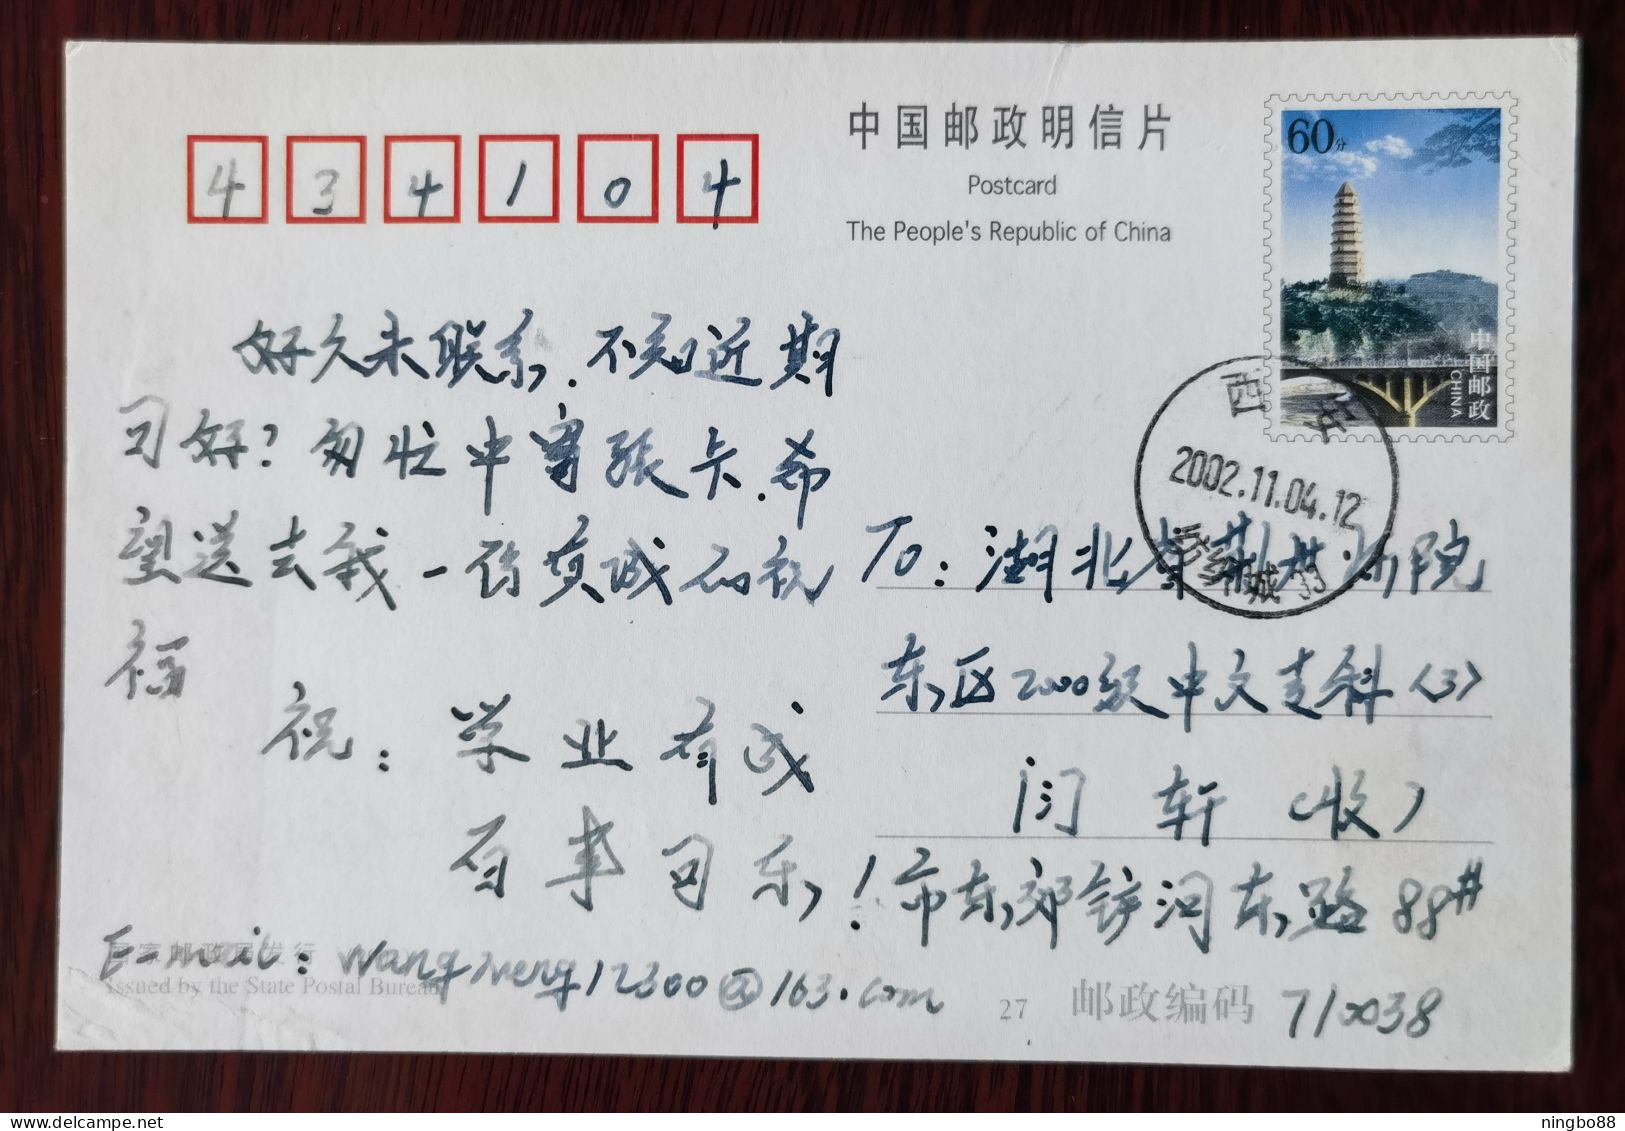 434104
中国邮政明信片
Postcard
The People's Republic of China
60分
中国邮政
CHINA
西安
2002.11.04.12
纺织城 33
好久未联系.不知近期
可好?匆忙中寄张卡.希
望送去我一份真诚的祝
福
祝:学业有成
百事可乐!
To:湖北省荆州师院
东区2000级中文专科(3)
闫轩(收)
市东郊铲河东路88#
国家邮政局发行
Issued by the State Postal Bureau
27
邮政编码 710038
ningbo88